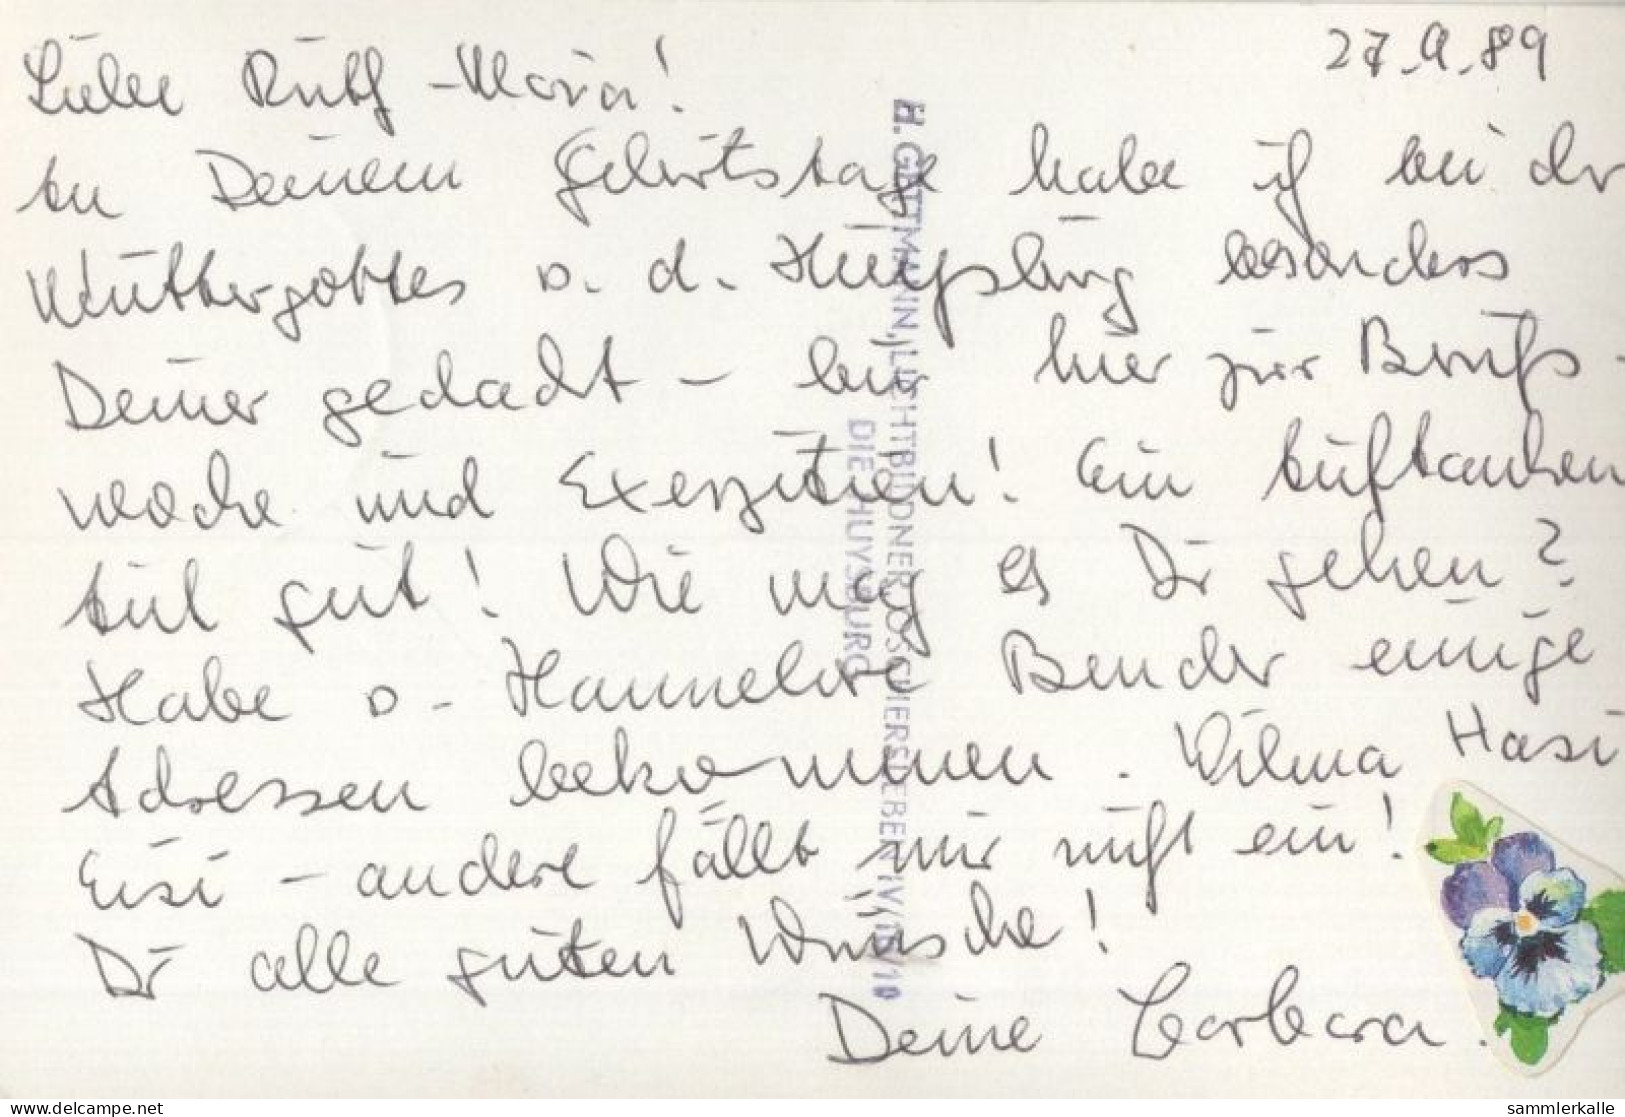 27.9.89
Liebe Ruth-Maria!
An Deinem Geburtstage habe ich bei der
Muttergottes v. d. Huysburg besonders
Deiner gedacht – bin hier zur Berufs-
woche und Exerzitien! Ein Auftanken
tut gut! Wie mag es Dir gehen?
Habe v. Hannelore Bender einige
Adressen bekommen. Wilma Hasi
Eisi – andere fällt mir nicht ein!
Dir alle guten Wünsche!
Deine Barbara.
H. GATTMANN, LICHTBILDNER, OSCHERSLEBEN IV/15/10
DIE HUYSBURG
www.delcampe.net
sammlerkalle